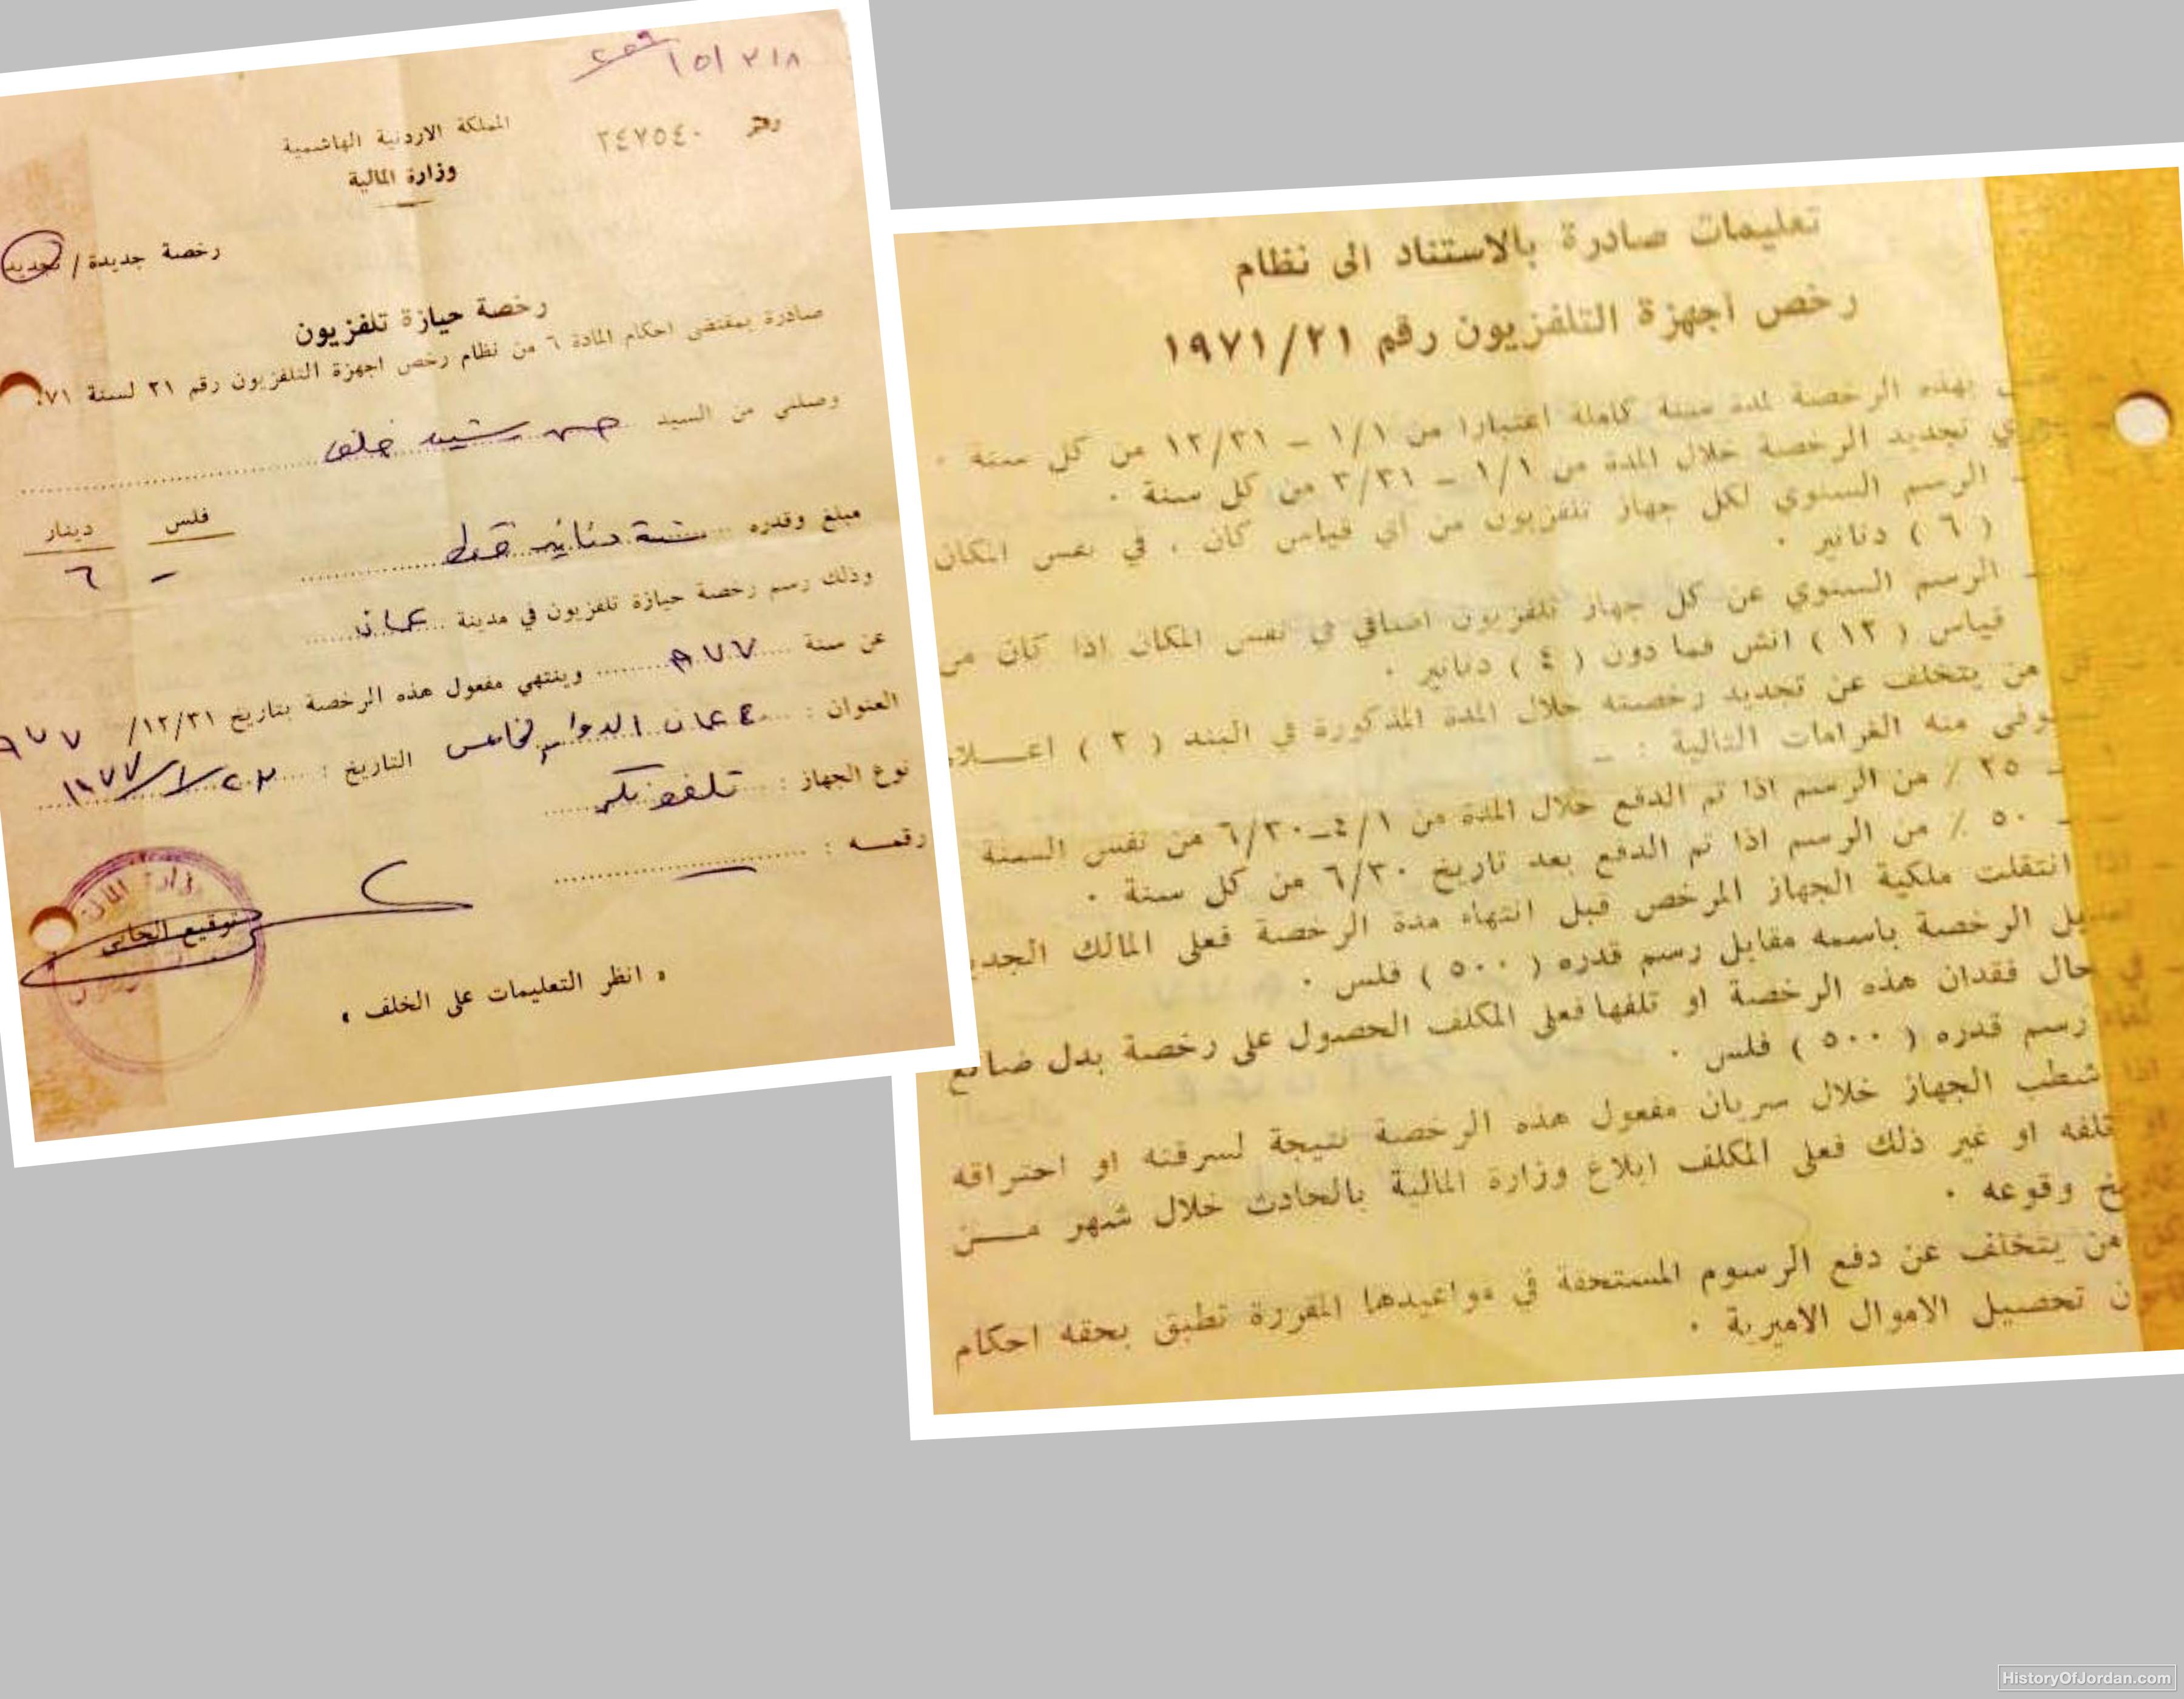 ٢٥٩
١٥١٣١٨
رقم ٢٤٧٥٤٠
المملكة الاردنية الهاشمية
وزارة المالية
رخصة جديدة / تجديد
رخصة حيازة تلفزيون
صادرة بمقتضى احكام المادة ٦ من نظام رخص اجهزة التلفزيون رقم ٢١ لسنة ٧١
وصلني من السيد حسن رشيد خلف
فلس دينار
- ٦
مبلغ وقدره ستة دنانير فقط
وذلك رسم رخصة حيازة تلفزيون في مدينة عمان
عن سنة ٩٧٧ وينتهي مفعول هذه الرخصة بتاريخ ١٢/٣١/ ٩٧٧
العنوان : عمان الخامس التاريخ : ١٩٧٧
نوع الجهاز : تلفونكن
رقمه : —
وزارة المالية
توقيع الجابي
• انظر التعليمات على الخلف •
تعليمات صادرة بالاستناد الى نظام
رخص اجهزة التلفزيون رقم ١٩٧١/٢١
بهذه الرخصة لمدة سنة كاملة اعتبارا من ١/١ – ١٢/٣١ من كل سنة .
تجديد الرخصة خلال المدة من ١/١ – ٣/٣١ من كل سنة .
الرسم السنوي لكل جهاز تلفزيون من اي قياس كان ، في نفس المكان
( ٦ ) دنانير .
الرسم السنوي عن كل جهاز تلفزيون اضافي في نفس المكان اذا كان من
قياس ( ١٢ ) انش فما دون ( ٤ ) دنانير .
من يتخلف عن تجديد رخصته خلال المدة المذكورة في البند ( ٢ ) اعـــلاه
منه الغرامات التالية : –
– ٢٥ ٪ من الرسم اذا تم الدفع خلال المدة من ٤/١–٦/٣٠ من نفس السنة
– ٥٠ ٪ من الرسم اذا تم الدفع بعد تاريخ ٦/٣٠ من كل سنة .
اذا انتقلت ملكية الجهاز المرخص قبل انتهاء مدة الرخصة فعلى المالك الجديد
الرخصة باسمه مقابل رسم قدره ( ٥٠٠ ) فلس .
في حال فقدان هذه الرخصة او تلفها فعلى المكلف الحصول على رخصة بدل ضائع
رسم قدره ( ٥٠٠ ) فلس .
اذا شطب الجهاز خلال سريان مفعول هذه الرخصة نتيجة لسرقته او احتراقه
او تلفه او غير ذلك فعلى المكلف ابلاغ وزارة المالية بالحادث خلال شهر مـــن
وقوعه .
من يتخلف عن دفع الرسوم المستحقة في مواعيدها المقررة تطبق بحقه احكام
تحصيل الاموال الاميرية .
HistoryOfJordan.com